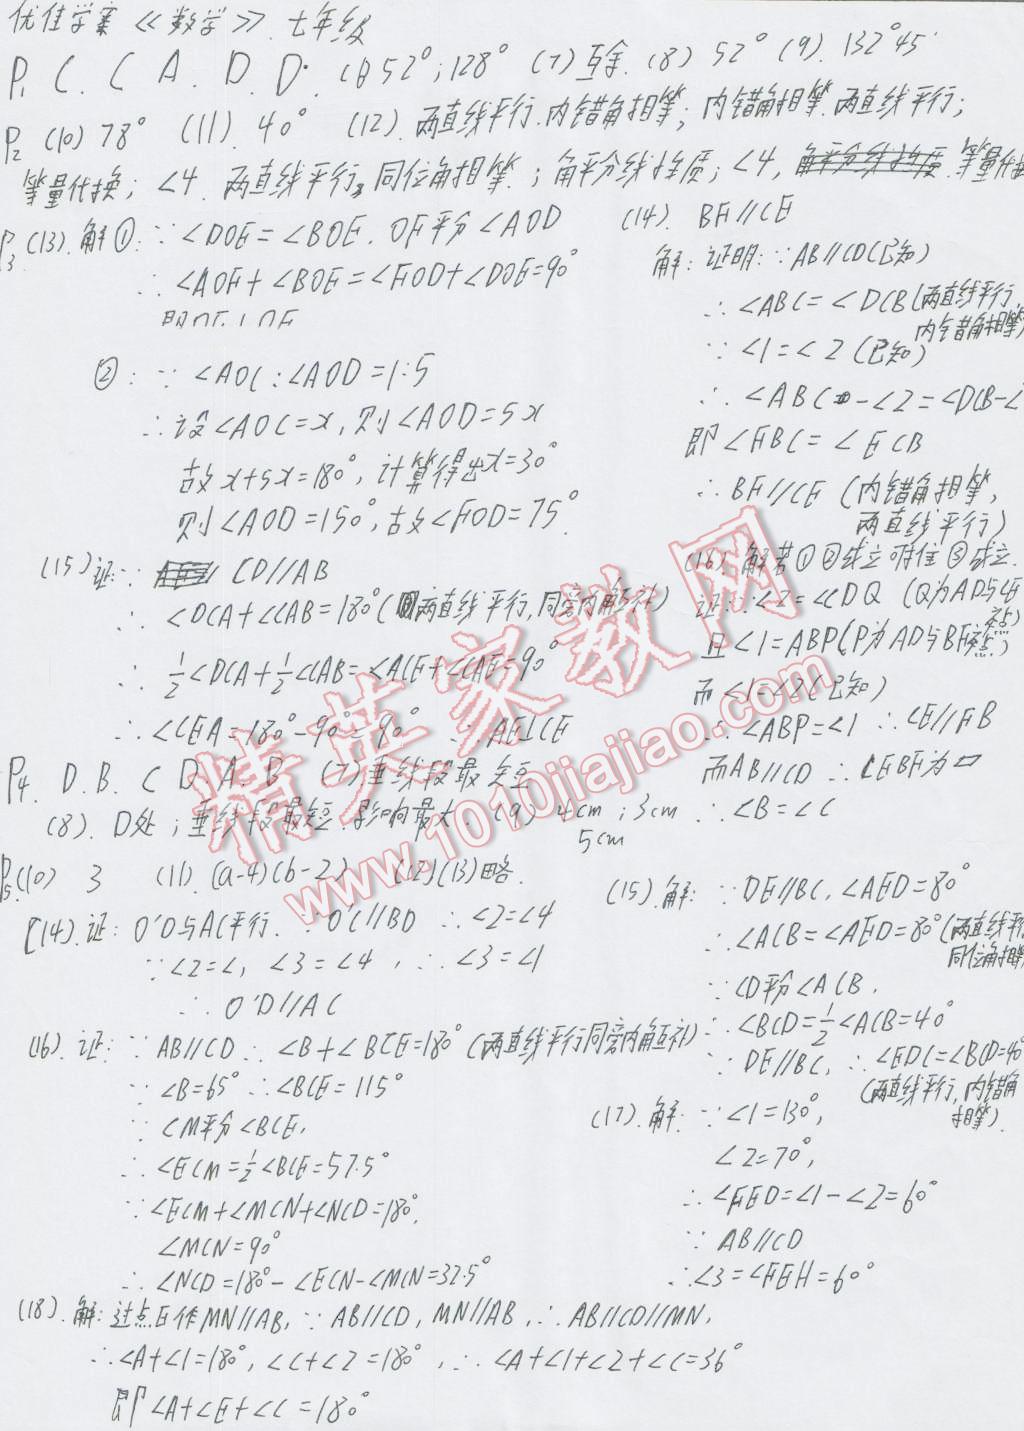 优佳学案《数学》.七年级
P1 C. C A. D. D. (6) 52°; 128° (7) 互余. (8) 52° (9). 132°45′
P2 (10) 78° (11). 40° (12). 两直线平行.内错角相等; 内错角相等.两直线平行;
等量代换; ∠4. 两直线平行, 同位角相等.; 角平分线性质; ∠4, 等量代换
P3 (13). 解 ①: ∵ ∠DOE=∠BOE. OF平分∠AOD
∴ ∠AOF+∠BOE=∠FOD+∠DOE=90°
②: ∵ ∠AOC:∠AOD=1:5
∴ 设∠AOC=x, 则∠AOD=5x
故 x+5x=180°, 计算得出x=30°
则∠AOD=150°, 故∠FOD=75°.
(14). BF//CE
解: 证明: ∵ AB//CD(已知)
∴ ∠ABC=∠DCB(两直线平行,
内错角相等)
∵ ∠1=∠2(已知)
∴ ∠ABC-∠2=∠DCB-∠
即∠FBC=∠ECB
∴ BF//CE (内错角相等,
两直线平行)
(15) 证: ∵ CD//AB
∴ ∠DCA+∠CAB=180°(两直线平行,同旁内角互补)
∴ ½∠DCA+½∠CAB=∠ACE+∠CAE=90°
∴ ∠CEA=180°-90°=90° ∴ AE⊥CE
(16). 解若①②成立可推③成立.
证: ∵ ∠2=∠CDQ (Q为AD与CE
交点)
且∠1=ABP(P为AD与BF交点)
而∠1=∠2(已知)
∴ ∠ABP=∠1 ∴ CE//FB
而AB//CD ∴ CEBF为▱
∴ ∠B=∠C
P4. D. B. C D. A. B (7) 垂线段最短
(8). D处; 垂线段最短. 影响最大. (9) 4cm; 3cm
5cm
P5 (10) 3 (11). (a-4)(b-2) (12)(13)略.
(14). 证: O′D与AC平行. ∵ O′C//BD ∴ ∠2=∠4
∵ ∠2=∠1, ∠3=∠4, ∴ ∠3=∠1
∴ O′D//AC
(15). 解: ∵ DE//BC, ∠AED=80°
∴ ∠ACB=∠AED=80°(两直线平行
同位角相等
∵ CD平分∠ACB.
∴ ∠BCD=½∠ACB=40°
∵ DE//BC, ∴ ∠EDC=∠BCD=40°
(两直线平行, 内错角
相等).
(16). 证: ∵ AB//CD ∴ ∠B+∠BCE=180° (两直线平行同旁内角互补)
∵ ∠B=65° ∴ ∠BCE=115°
∵ CM平分∠BCE,
∴ ∠ECM=½∠BCE=57.5°
∵ ∠ECM+∠MCN+∠NCD=180°.
∠MCN=90°
∴ ∠NCD=180°-∠ECN-∠MCN=32.5°
(17). 解: ∵ ∠1=130°,
∠2=70°,
∴ ∠FED=∠1-∠2=60°
∵ AB//CD
∴ ∠3=∠FEH=60°
(18). 解: 过点E作MN//AB, ∵ AB//CD, MN//AB, ∴ AB//CD//MN,
∴ ∠A+∠1=180°, ∠C+∠2=180°, ∴ ∠A+∠1+∠2+∠C=36°
即∠A+∠E+∠C=180°
精英家教网
www.1010jiajiao.com